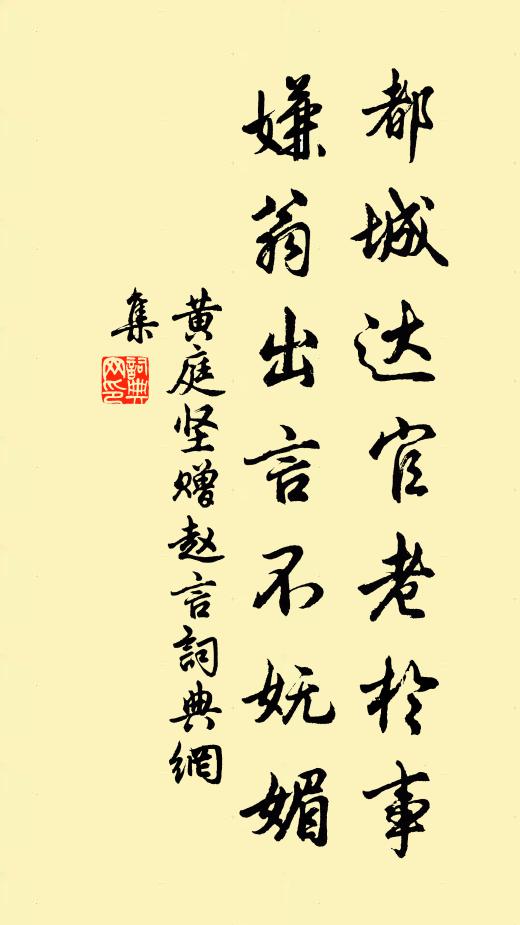 都城达官老於事
嫌翁出言不妩媚
黄庭坚赠赵言詞典網
集
詞典
网印